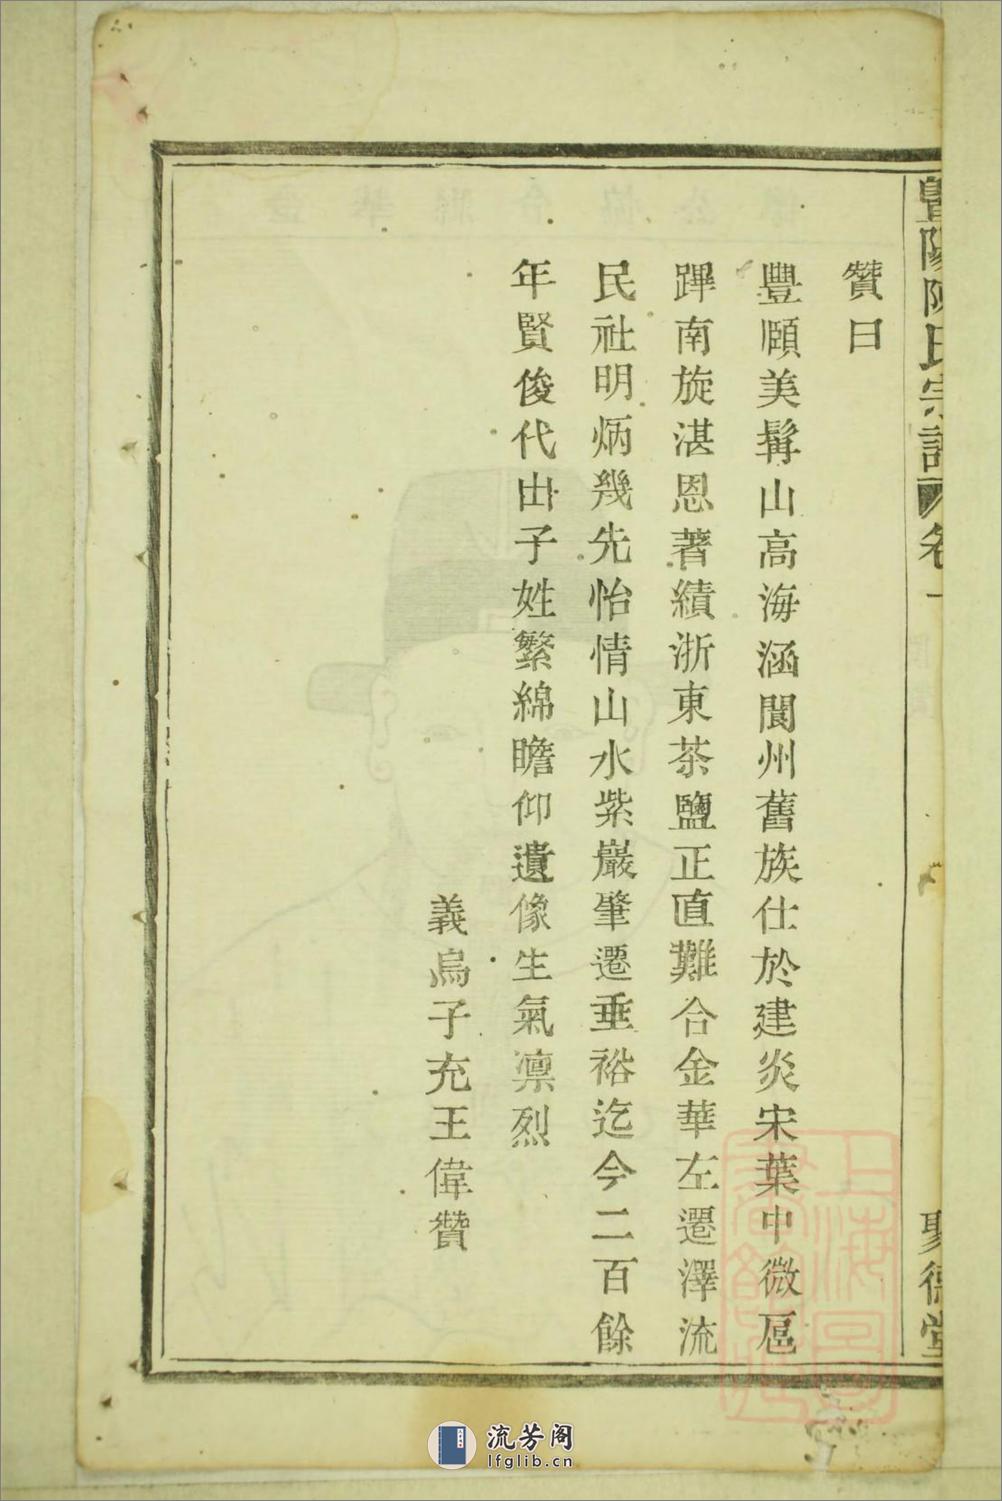 暨陽陳氏宗譜 卷一 聚德堂
贊曰
豐頤美髯山高海涵閬州舊族仕於建炎宋葉中微扈
蹕南旋湛恩著績浙東茶鹽正直難合金華左遷澤流
民社明炳幾先怡情山水紫巖肇遷垂裕迄今二百餘
年賢俊代出子姓繁綿瞻仰遺像生氣凛烈
義烏子充王偉贊
上海圖書館藏
流芳阁
lfglib.cn